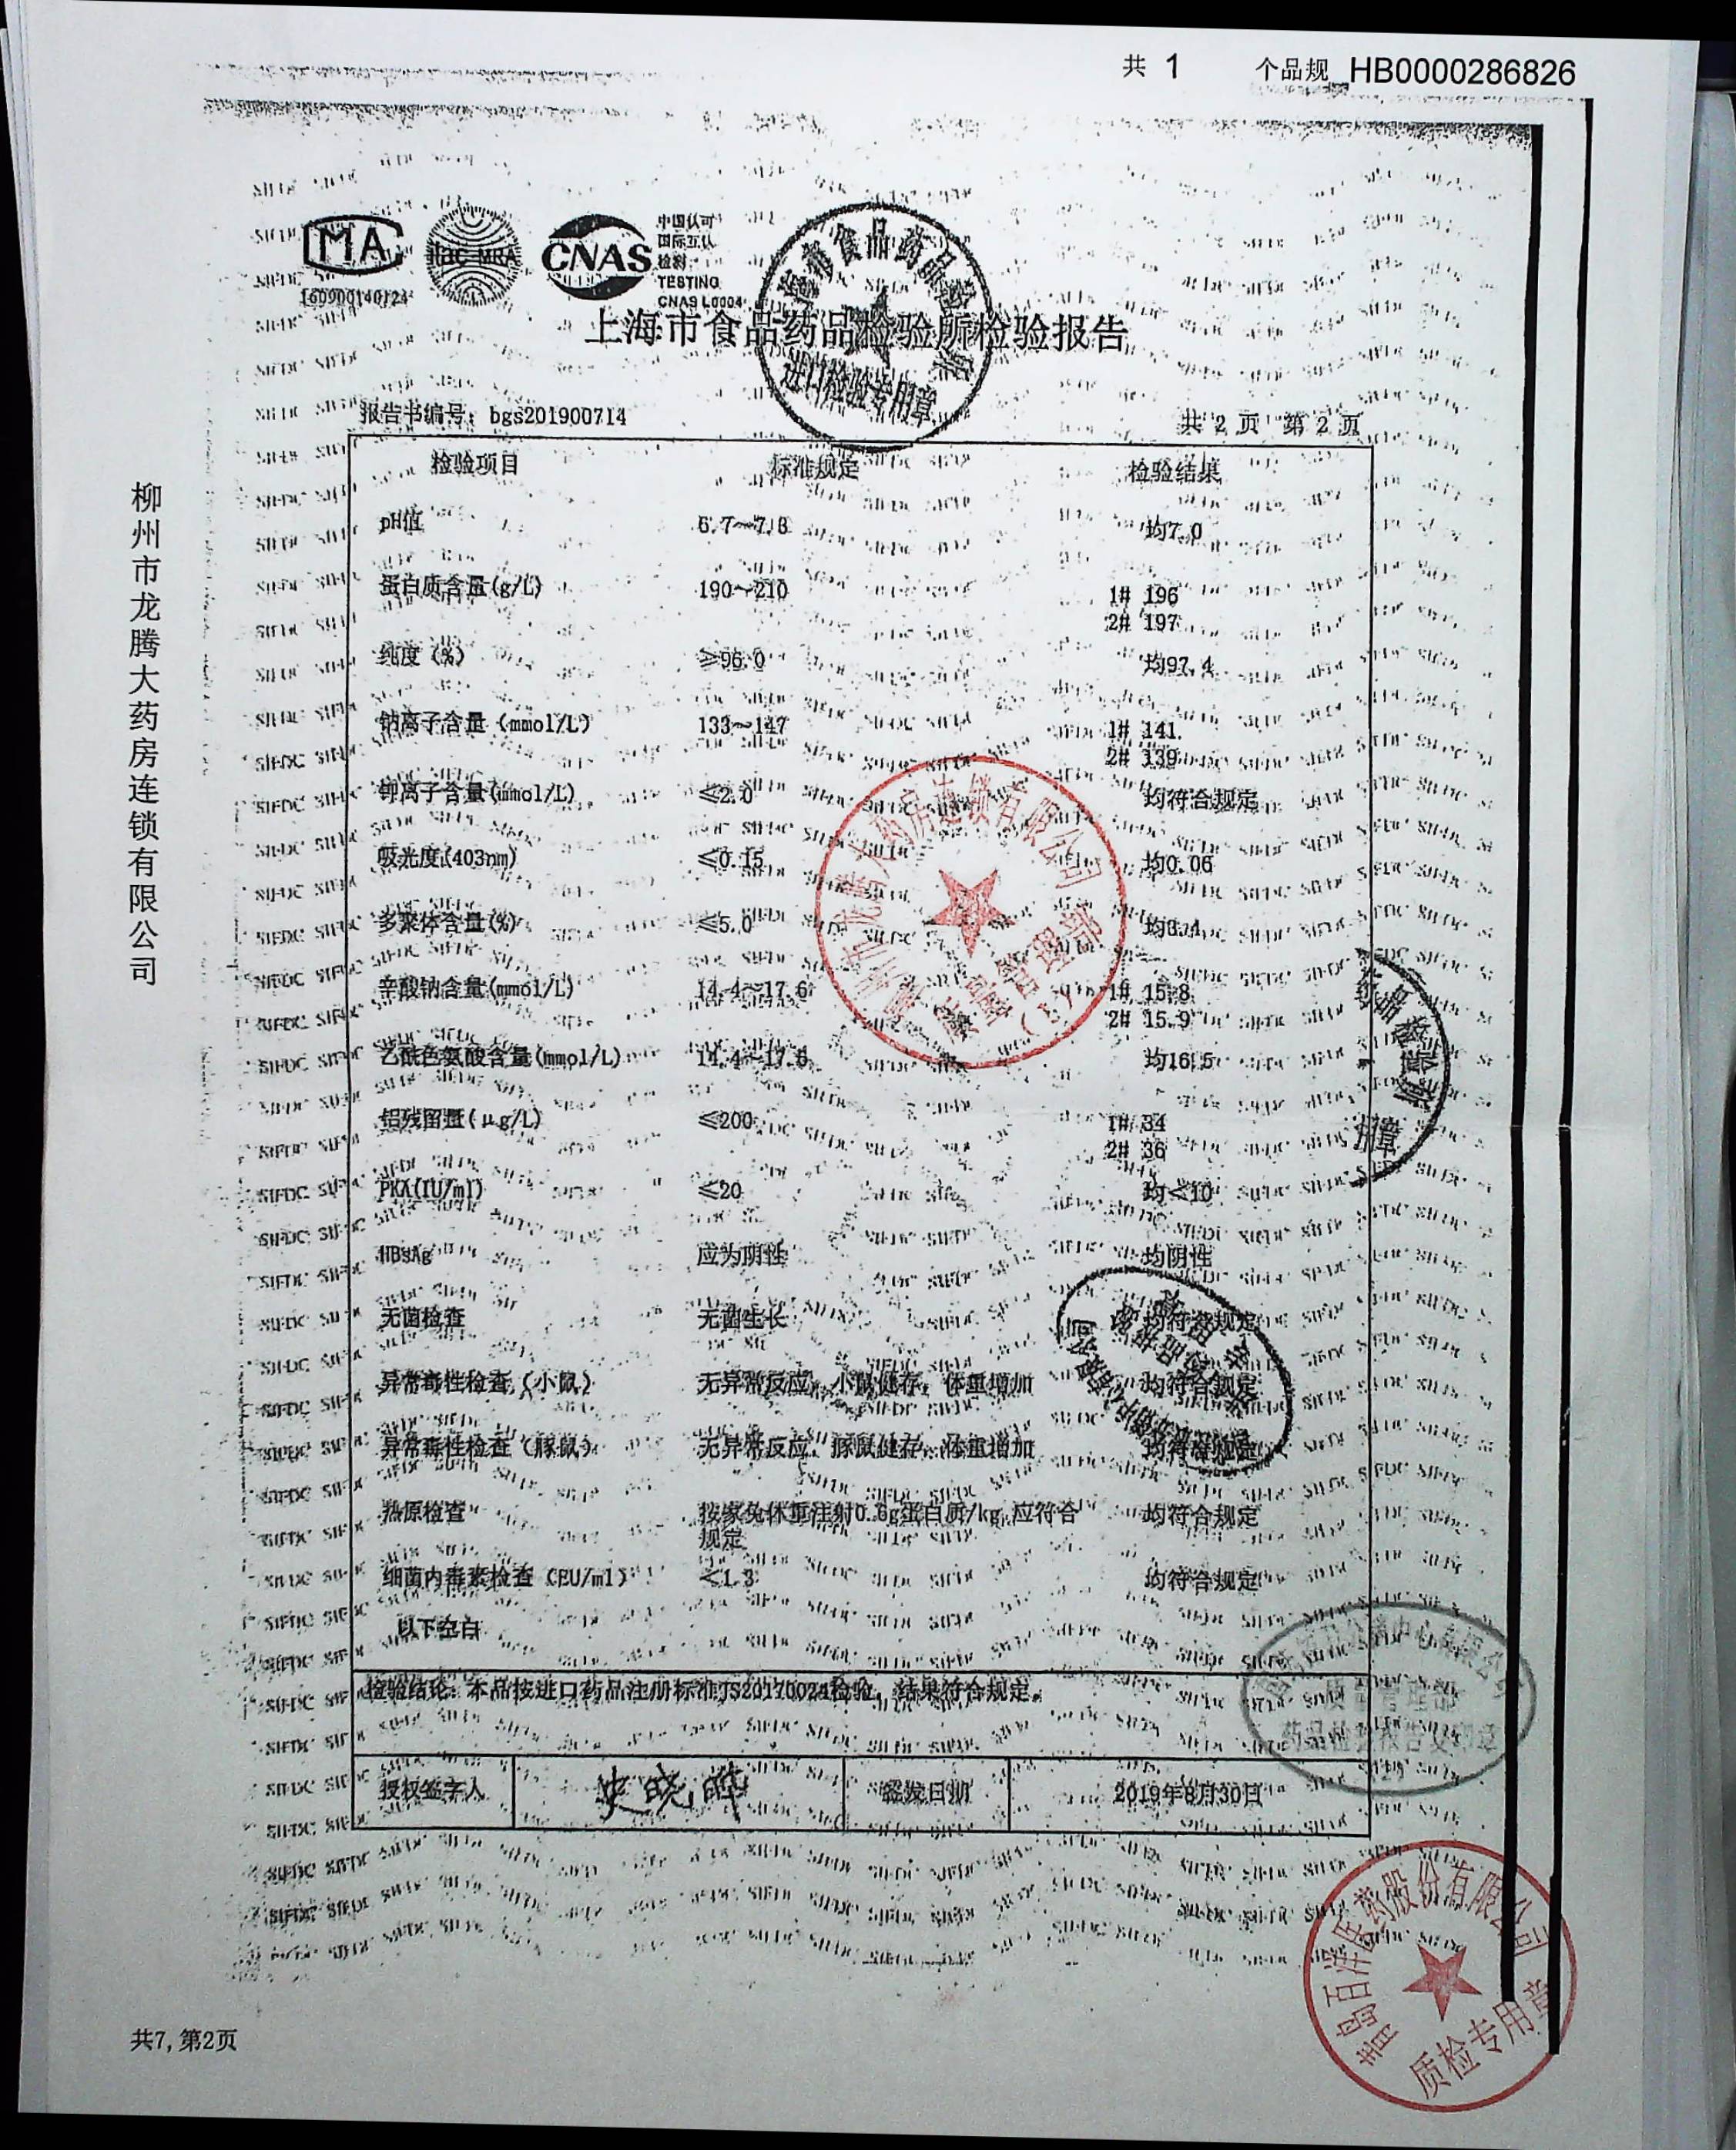 共 1 个品规 HB0000286826
MA
160900140124
ilac-MRA
CNAS
中国认可
国际互认
检测
TESTING
CNAS L0004
上海市食品药品检验所检验报告
进口检验专用章
报告书编号: bgs201900714 共 2 页 第 2 页
检验项目 标准规定 检验结果
pH值 6.7~7.3 均7.0
蛋白质含量(g/L) 190~210 1# 196
2# 197
纯度(%) ≥96.0 均97.4
钠离子含量(mmol/L) 133~147 1# 141
2# 139
钾离子含量(mmol/L) ≤2.0 均符合规定
吸光度(403nm) ≤0.15 均0.06
多聚体含量(%) ≤5.0 均3.4
辛酸钠含量(mmol/L) 14.4~17.6 1# 15.8
2# 15.9
乙酰色氨酸含量(mmol/L) 14.4~17.6 均16.5
铝残留量(μg/L) ≤200 1# 34
2# 36
PKA(IU/ml) ≤20 均<10
HBsAg 应为阴性 均阴性
无菌检查 无菌生长 均符合规定
异常毒性检查(小鼠) 无异常反应, 小鼠健存, 体重增加 均符合规定
异常毒性检查(豚鼠) 无异常反应, 豚鼠健存, 体重增加 均符合规定
热原检查 按家兔体重注射0.6g蛋白质/kg,应符合 均符合规定
规定
细菌内毒素检查(EU/ml) <1.3 均符合规定
以下空白
检验结论: 本品按进口药品注册标准JS20170024检验, 结果符合规定。
授权签字人 史晓晔 签发日期 2019年8月30日
柳州市龙腾大药房连锁有限公司
质量管理部
药品检验报告复印章
青岛百洋医药股份有限公司
质检专用章
共7,第2页